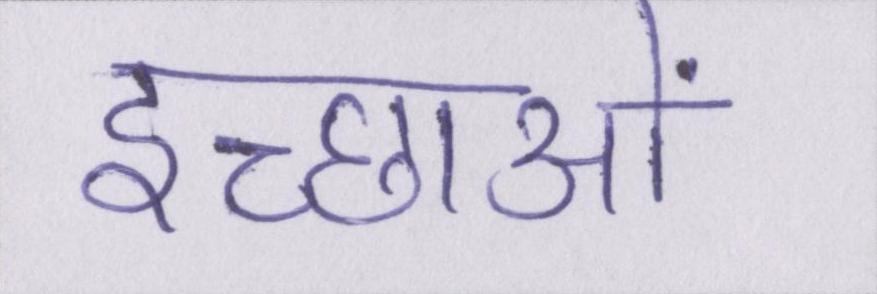 इच्छाओं